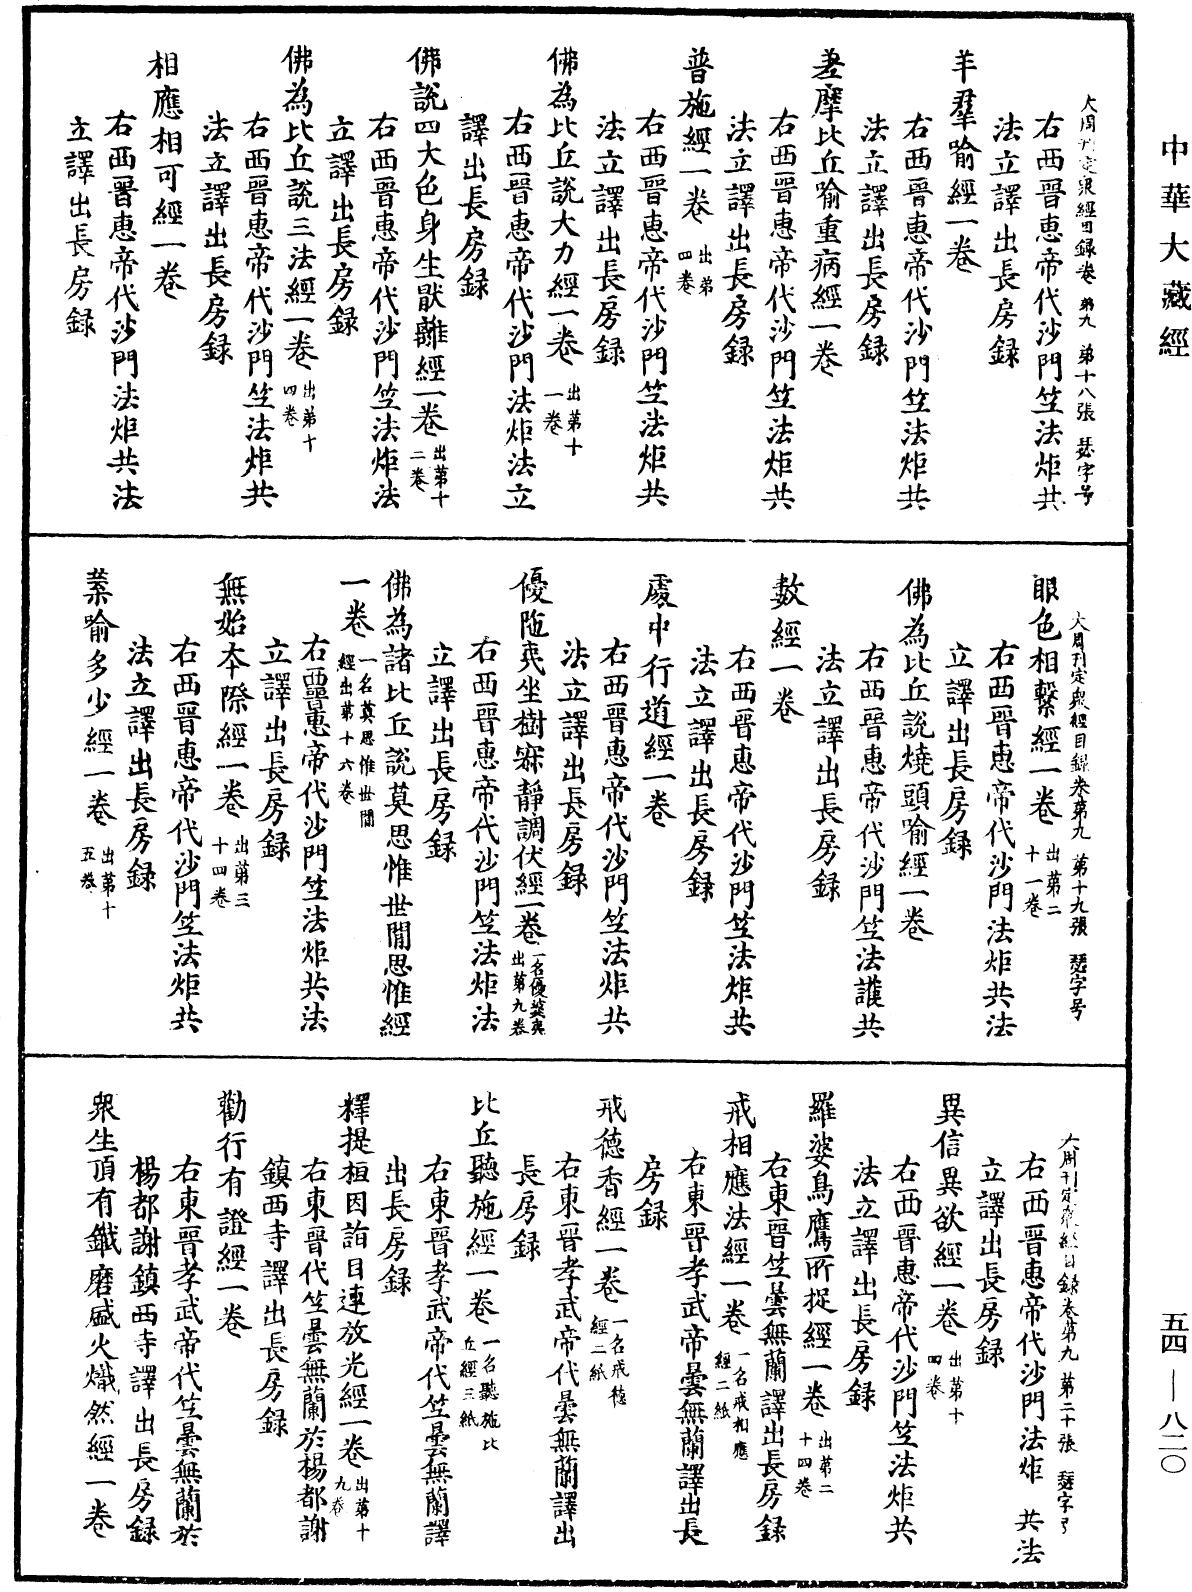 中華大藏經
五四—八二〇
大周刊定衆經目録卷第九 第十八張 瑟字号
右西晉惠帝代沙門竺法炬共
法立譯出長房録
羊羣喻經一卷
右西晉惠帝代沙門竺法炬共
法立譯出長房録
差摩比丘喻重病經一卷
右西晉惠帝代沙門竺法炬共
法立譯出長房録
普施經一卷 出第四卷
右西晉惠帝代沙門竺法炬共
法立譯出長房録
佛為比丘說大力經一卷 出第十一卷
右西晉惠帝代沙門法炬法立
譯出長房録
佛說四大色身生猒離經一卷 出第十二卷
右西晉惠帝代沙門竺法炬法
立譯出長房録
佛為比丘說三法經一卷 出第十四卷
右西晉惠帝代沙門竺法炬共
法立譯出長房録
相應相可經一卷
右西晉惠帝代沙門法炬共法
立譯出長房録
大周刊定衆經目録卷第九 第十九張 瑟字号
眼色相繫經一卷 出第二十一卷
右西晉惠帝代沙門法炬共法
立譯出長房録
佛為比丘說燒頭喻經一卷
右西晉惠帝代沙門竺法護共
法立譯出長房録
數經一卷
右西晉惠帝代沙門竺法炬共
法立譯出長房録
處中行道經一卷
右西晉惠帝代沙門竺法炬共
法立譯出長房録
優陁夷坐樹寂靜調伏經一卷 一名優蓝夷出第九卷
右西晉惠帝代沙門竺法炬法
立譯出長房録
佛為諸比丘說莫思惟世閒思惟經
一卷 一名莫思惟世閒經出第十六卷
右西晉惠帝代沙門竺法炬共法
立譯出長房録
無始本際經一卷 出第三十四卷
右西晉惠帝代沙門竺法炬共
法立譯出長房録
藥喻多少經一卷 出第十五卷
大周刊定衆經目録卷第九 第二十張 瑟字号
右西晉惠帝代沙門法炬共法
立譯出長房録
異信異欲經一卷 出第十四卷
右西晉惠帝代沙門竺法炬共
法立譯出長房録
羅婆鳥鷹所捉經一卷 出第二十四卷
右東晉竺曇無蘭譯出長房録
戒相應法經一卷 一名戒相應經二紙
右東晉孝武帝曇無蘭譯出長
房録
戒德香經一卷 一名戒德經二紙
右東晉孝武帝代曇無蘭譯出
長房録
比丘聽施經一卷 一名聽施比丘經三紙
右東晉孝武帝代竺曇無蘭譯
出長房録
釋提桓因詣目連放光經一卷 出第十九卷
右東晉代竺曇無蘭於楊都謝
鎮西寺譯出長房録
勸行有證經一卷
右東晉孝武帝代竺曇無蘭於
楊都謝鎮西寺譯出長房録
衆生頂有鐵磨盛火熾然經一卷